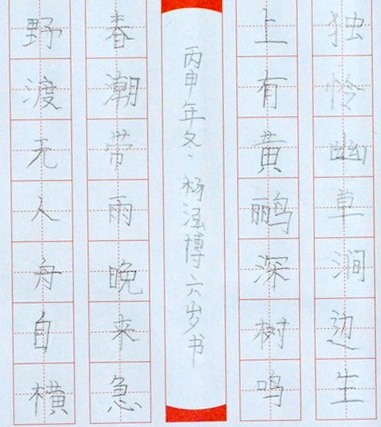 独怜幽草涧边生
上有黄鹂深树鸣
丙申年冬、杨泓博六岁书
春潮带雨晚来急
野渡无人舟自横